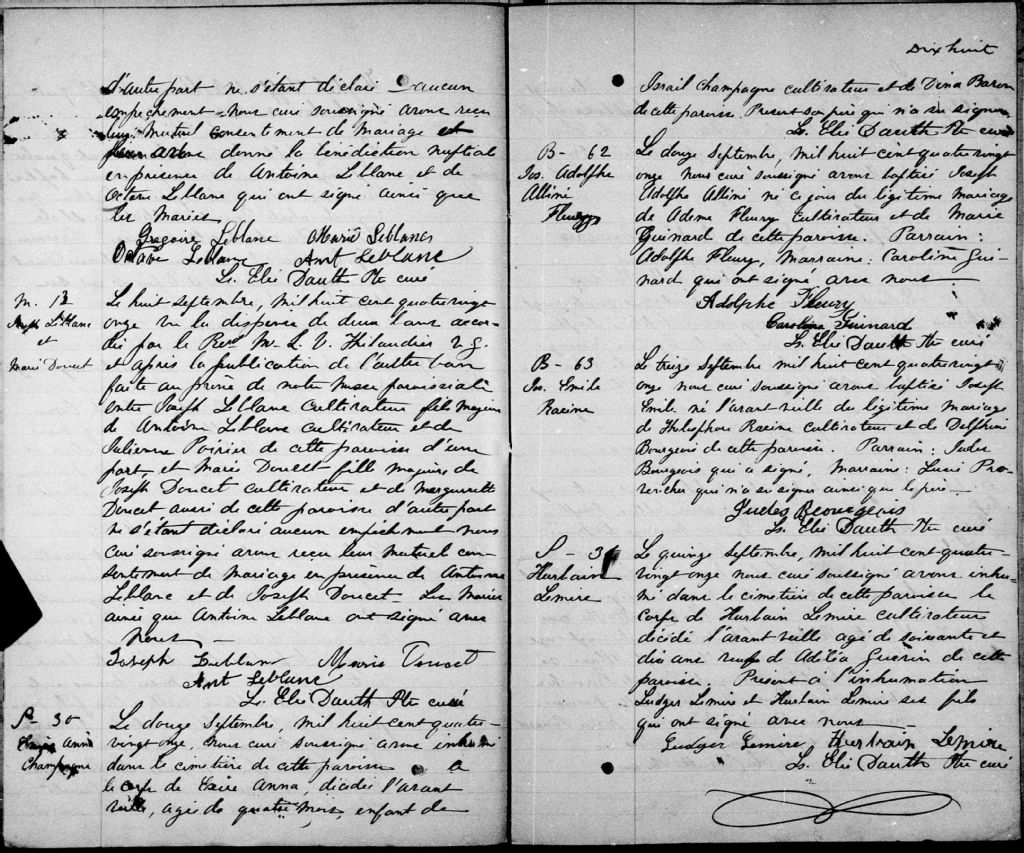 d'autre part ne s'étant déclaré aucun
empêchement Nous curé soussigné avons reçu
leur mutuel consentement de Mariage et
leur avons donné la bénédiction nuptiale
en présence de Antoine Leblanc et de
Octave Leblanc qui ont signé ainsi que
les Mariés
Gregoire Leblanc Marie Leblanc
Octave Leblanc Ant Leblanc
Ls. Elie Dauth Ptre curé
M. 12
Joseph Leblanc
et
Marie Doucet
Le huit septembre, mil huit cent quatre vingt
onze vu la dispense de deux bans accor-
dée par le Revd M. L. V. Thibaudier V. G.
et après la publication de l'autre ban
faite au prône de notre Messe paroissiale
entre Joseph Leblanc cultivateur fils majeur
de Antoine Leblanc cultivateur et de
Julienne Poirier de cette paroisse d'une
part et Marie Doucet fille majeure de
Joseph Doucet cultivateur et de Marguerite
Doucet aussi de cette paroisse d'autre part
ne s'étant déclaré aucun empêchement nous
curé soussigné avons reçu leur mutuel con-
sentement de mariage en présence de Antoine
Leblanc et de Joseph Doucet Les Mariés
ainsi que Antoine Leblanc ont signé avec
Nous
Joseph Leblanc Marie Doucet
Ant Leblanc
Ls. Elie Dauth Ptre curé
S - 30
Anna
Champagne
Le douze Septembre, mil huit cent quatre-
vingt onze, Nous curé soussigné avons inhumé
dans le cimetière de cette paroisse
le corps de Exire Anna, décédée l'avant
veille, agée de quatre mois, enfant de
Dix huit
Israil Champagne cultivateur et de Dina Baron
de cette paroisse. Present son père qui n'a su signer
Ls. Elie Dauth Ptre curé
B - 62
Jos. Adolphe
Albini
Fleury
Le douze Septembre, mil huit cent quatre vingt
onze Nous curé soussigné avons baptisé Joseph
Adolphe Albini né ce jour du légitime mariage
de Adème Fleury Cultivateur et de Marie
Guinard de cette paroisse. Parrain:
Adolphe Fleury, Marraine: Caroline Gui-
nard qui ont signé avec nous
Adolphe Fleury
Caroline Guinard
Ls. Elie Dauth Ptre curé
B - 63
Jos. Emile
Racine
Le treize Septembre mil huit cent quatre vingt
onze nous curé soussigné avons baptisé Joseph
Emile né l'avant veille du légitime mariage
de Thélesphore Racine cultivateur et de Delphine
Bourgeois de cette paroisse. Parrain: Judes
Bourgeois qui a signé, Marraine: Luci Pro-
vencher qui n'a su signer ainsi que le père
Judes Beourgeois
Ls. Elie Dauth Ptre curé
S - 31
Hurbain
Lemire
Le quinze Septembre, Mil huit cent quatre-
vingt onze nous curé soussigné avons inhu-
mé dans le cimetière de cette paroisse le
corps de Hurbain Lemire cultivateur
décédé l'avant veille agé de soixante et
dix ans veuf de Adélia Guerin de cette
paroisse. Present à l'inhumation
Ludger Lemire et Hurbain Lemire ses fils
qui ont signé avec nous
Ludger Lemire Hurbain Lemire
Ls. Elie Dauth Ptre curé